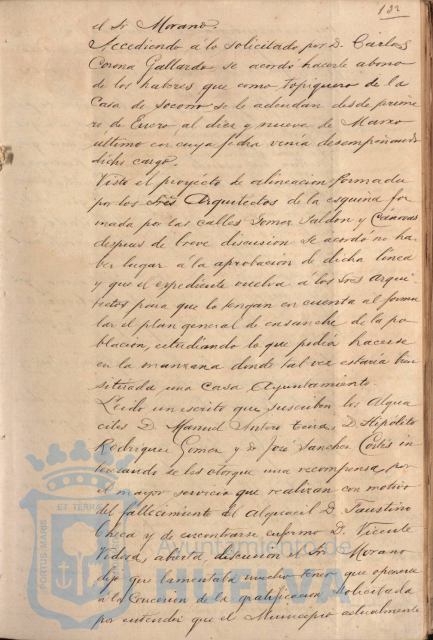 122
el Sr. Morano.
Accediendo á lo solicitado por D. Cárlos
Corona Gallardo se acordó hacerle abono
de los haberes que como topiquero de la
Casa de Socorro se le adeudan desde prime
ro, de Enero, al diez y nueve de Marzo
ultimo en cuya fecha venia desempeñando
dicho cargo.
Visto el proyécto de alineacion formada
por los Sres Arquitectos de la esquina for
mada por las calles Gomez Jaldon y Cánovas
despues de breve discusion se acordó no ha
ber lugar á la aprobacion de dicha linea
y que el espediente vuelva á los Sres Arqui
tectos para que lo tengan en cuenta al formu
lar el plan general de ensanche de la po
blacion, estudiando lo que podia hacerse
en la manzana donde tal vez estaria bien
situada una Casa Ayuntamiento.
Leido un escrito que suscriben los Algua
ciles D. Manuel D. Hipólito
Rodriguez Gomez y D. José Sanchez Cortés in
teresando se les otorgue una recompensa por
el mayor servicio que realizan con motivo
del fallecimiento del alguacil D. Faustino
Checa y de encontrarse enfermo D. Vicente
abierta discusion el Sr. Morano
dijo que lamentaba mucho tener que oponerse
á la concesion de la gratificacion solicitada
por entender que el Municipio actualmente
PORTUS MARIS ET TERRAE
Ayuntamiento de
HUELVA